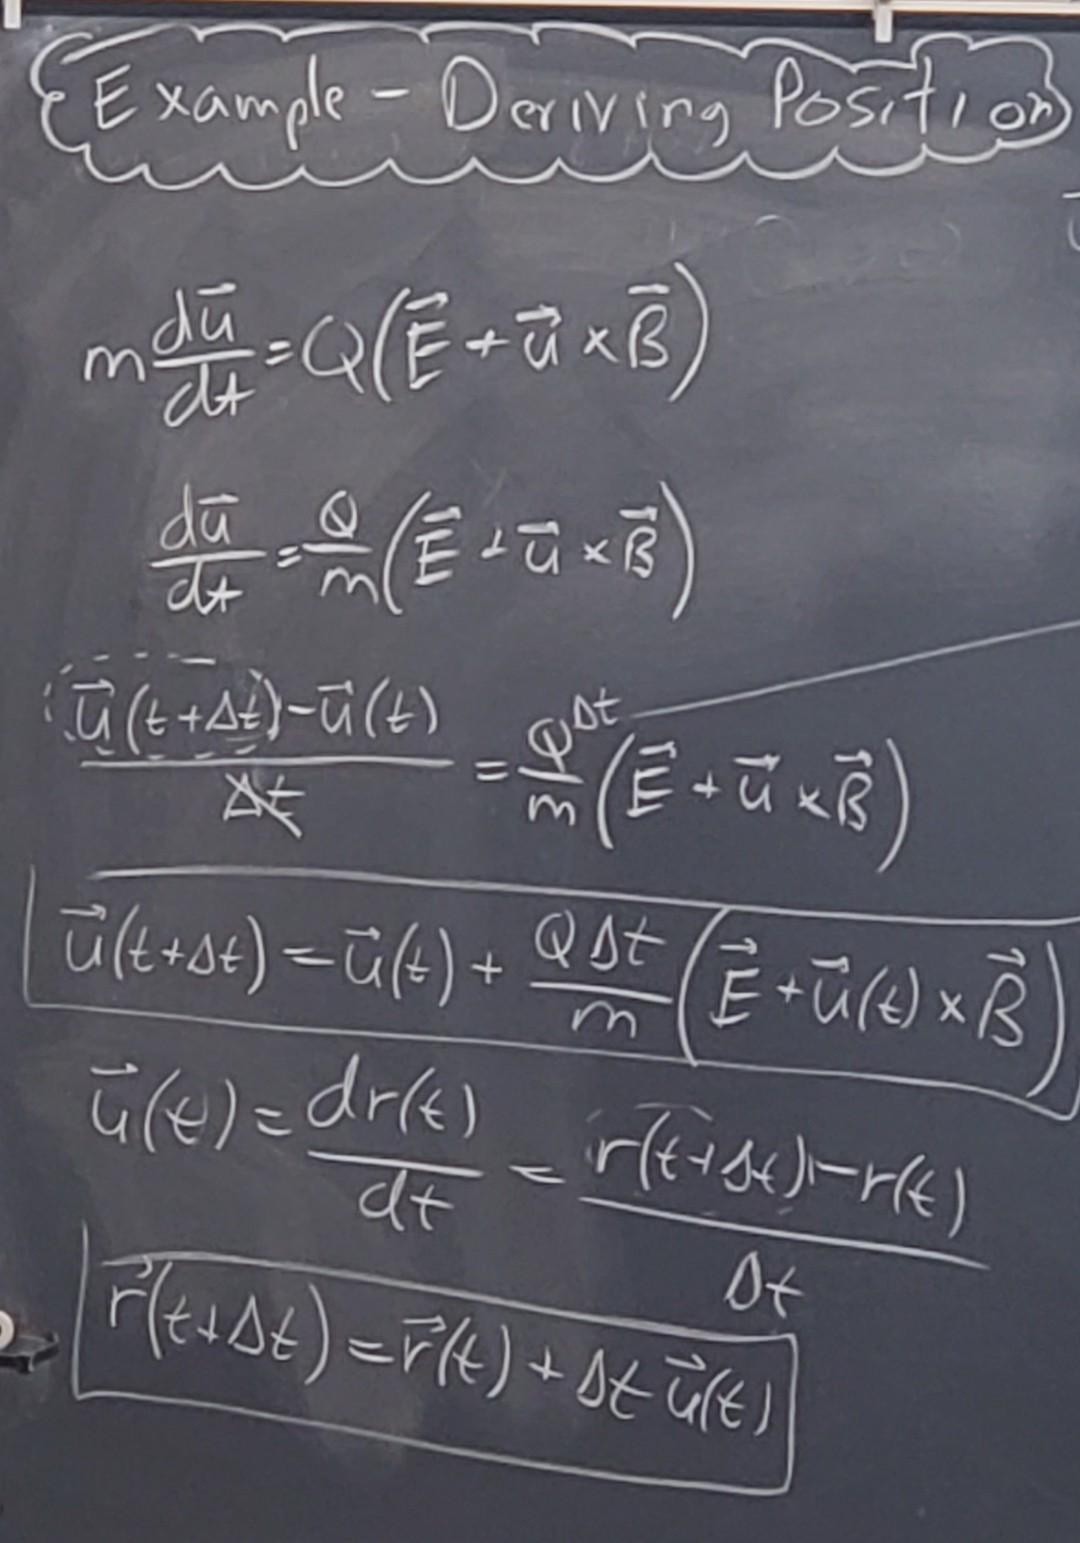 Example - Deriving Position
m du⃗/dt = Q(E⃗ + u⃗ × B⃗)
du⃗/dt = Q/m (E⃗ + u⃗ × B⃗)
(u⃗(t+Δt) - u⃗(t))/Δt = QΔt/m (E⃗ + u⃗ × B⃗)
u⃗(t+Δt) = u⃗(t) + QΔt/m (E⃗ + u⃗(t) × B⃗)
u⃗(t) = dr(t)/dt = (r(t+Δt) - r(t))/Δt
r⃗(t+Δt) = r⃗(t) + Δt u⃗(t)